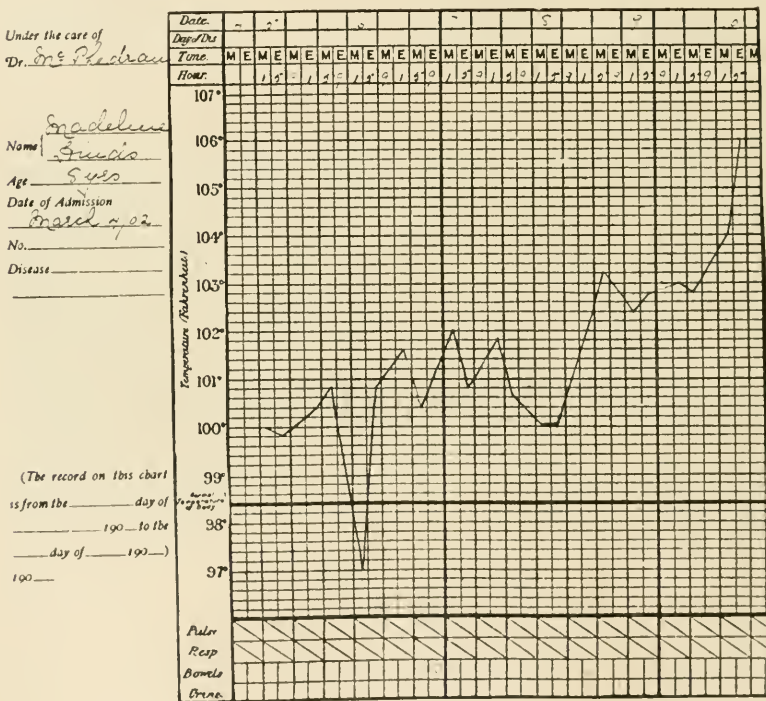 Under the care of
Dr. Mc Phedran
Name { Madeline
Age 5 yrs
Date of Admission
March 4, 02
No.
Disease
(The record on this chart
is from the ______ day of
______ 190__ to the
____ day of ____ 190__)
190__
Date.
Day of Dis
Time. M E M E M E M E M E M E M E M E M E M E M E M E M E M E M E M E M E M
Hour.
Temperature (Fahrenheit)
107°
106°
105°
104°
103°
102°
101°
100°
99°
Normal Temperature of body
98°
97°
Pulse
Resp
Bowels
Urine